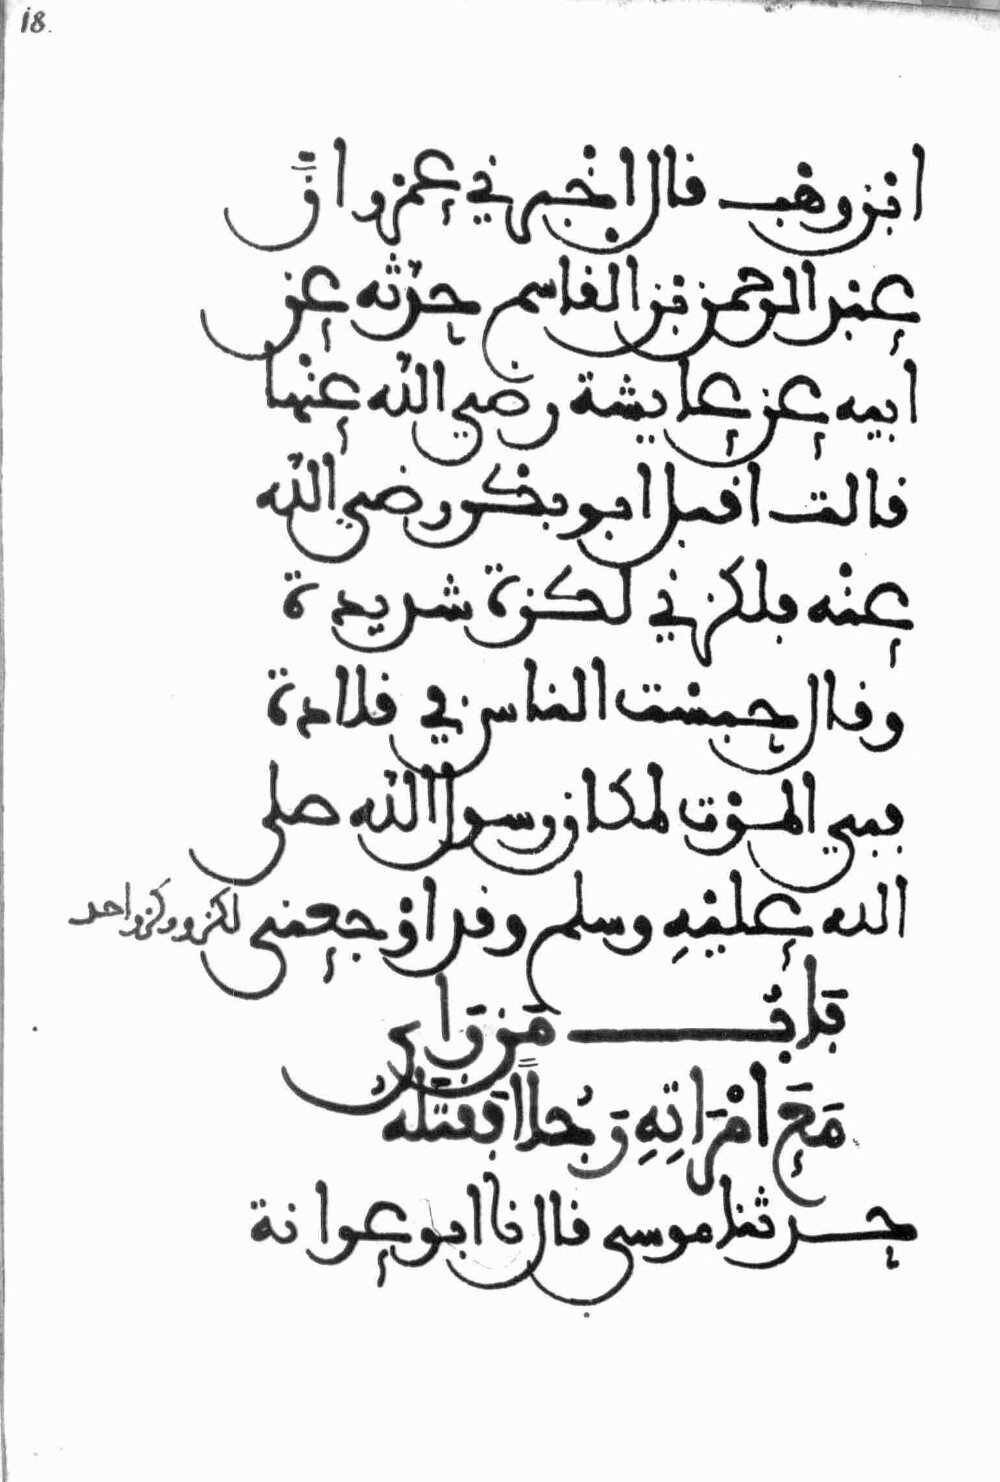 18.
ابن وهب قال اخبرني عمرو ان
عبد الرحمن بن القاسم حدثه عن
ابيه عن عايشة رضي الله عنها
قالت اقبل ابو بكر رضي الله
عنه فلكزني لكزة شديدة
وقال حبست الناس في قلادة
فبي الموت لمكان رسول الله صلى
الله عليه وسلم وقد اوجعني لكز ووكز واحد
باب من رأى
مَعَ امْرَاتِهِ رَجُلاً فَقَتَلَهُ
حدثنا موسى قال نا ابو عوانة